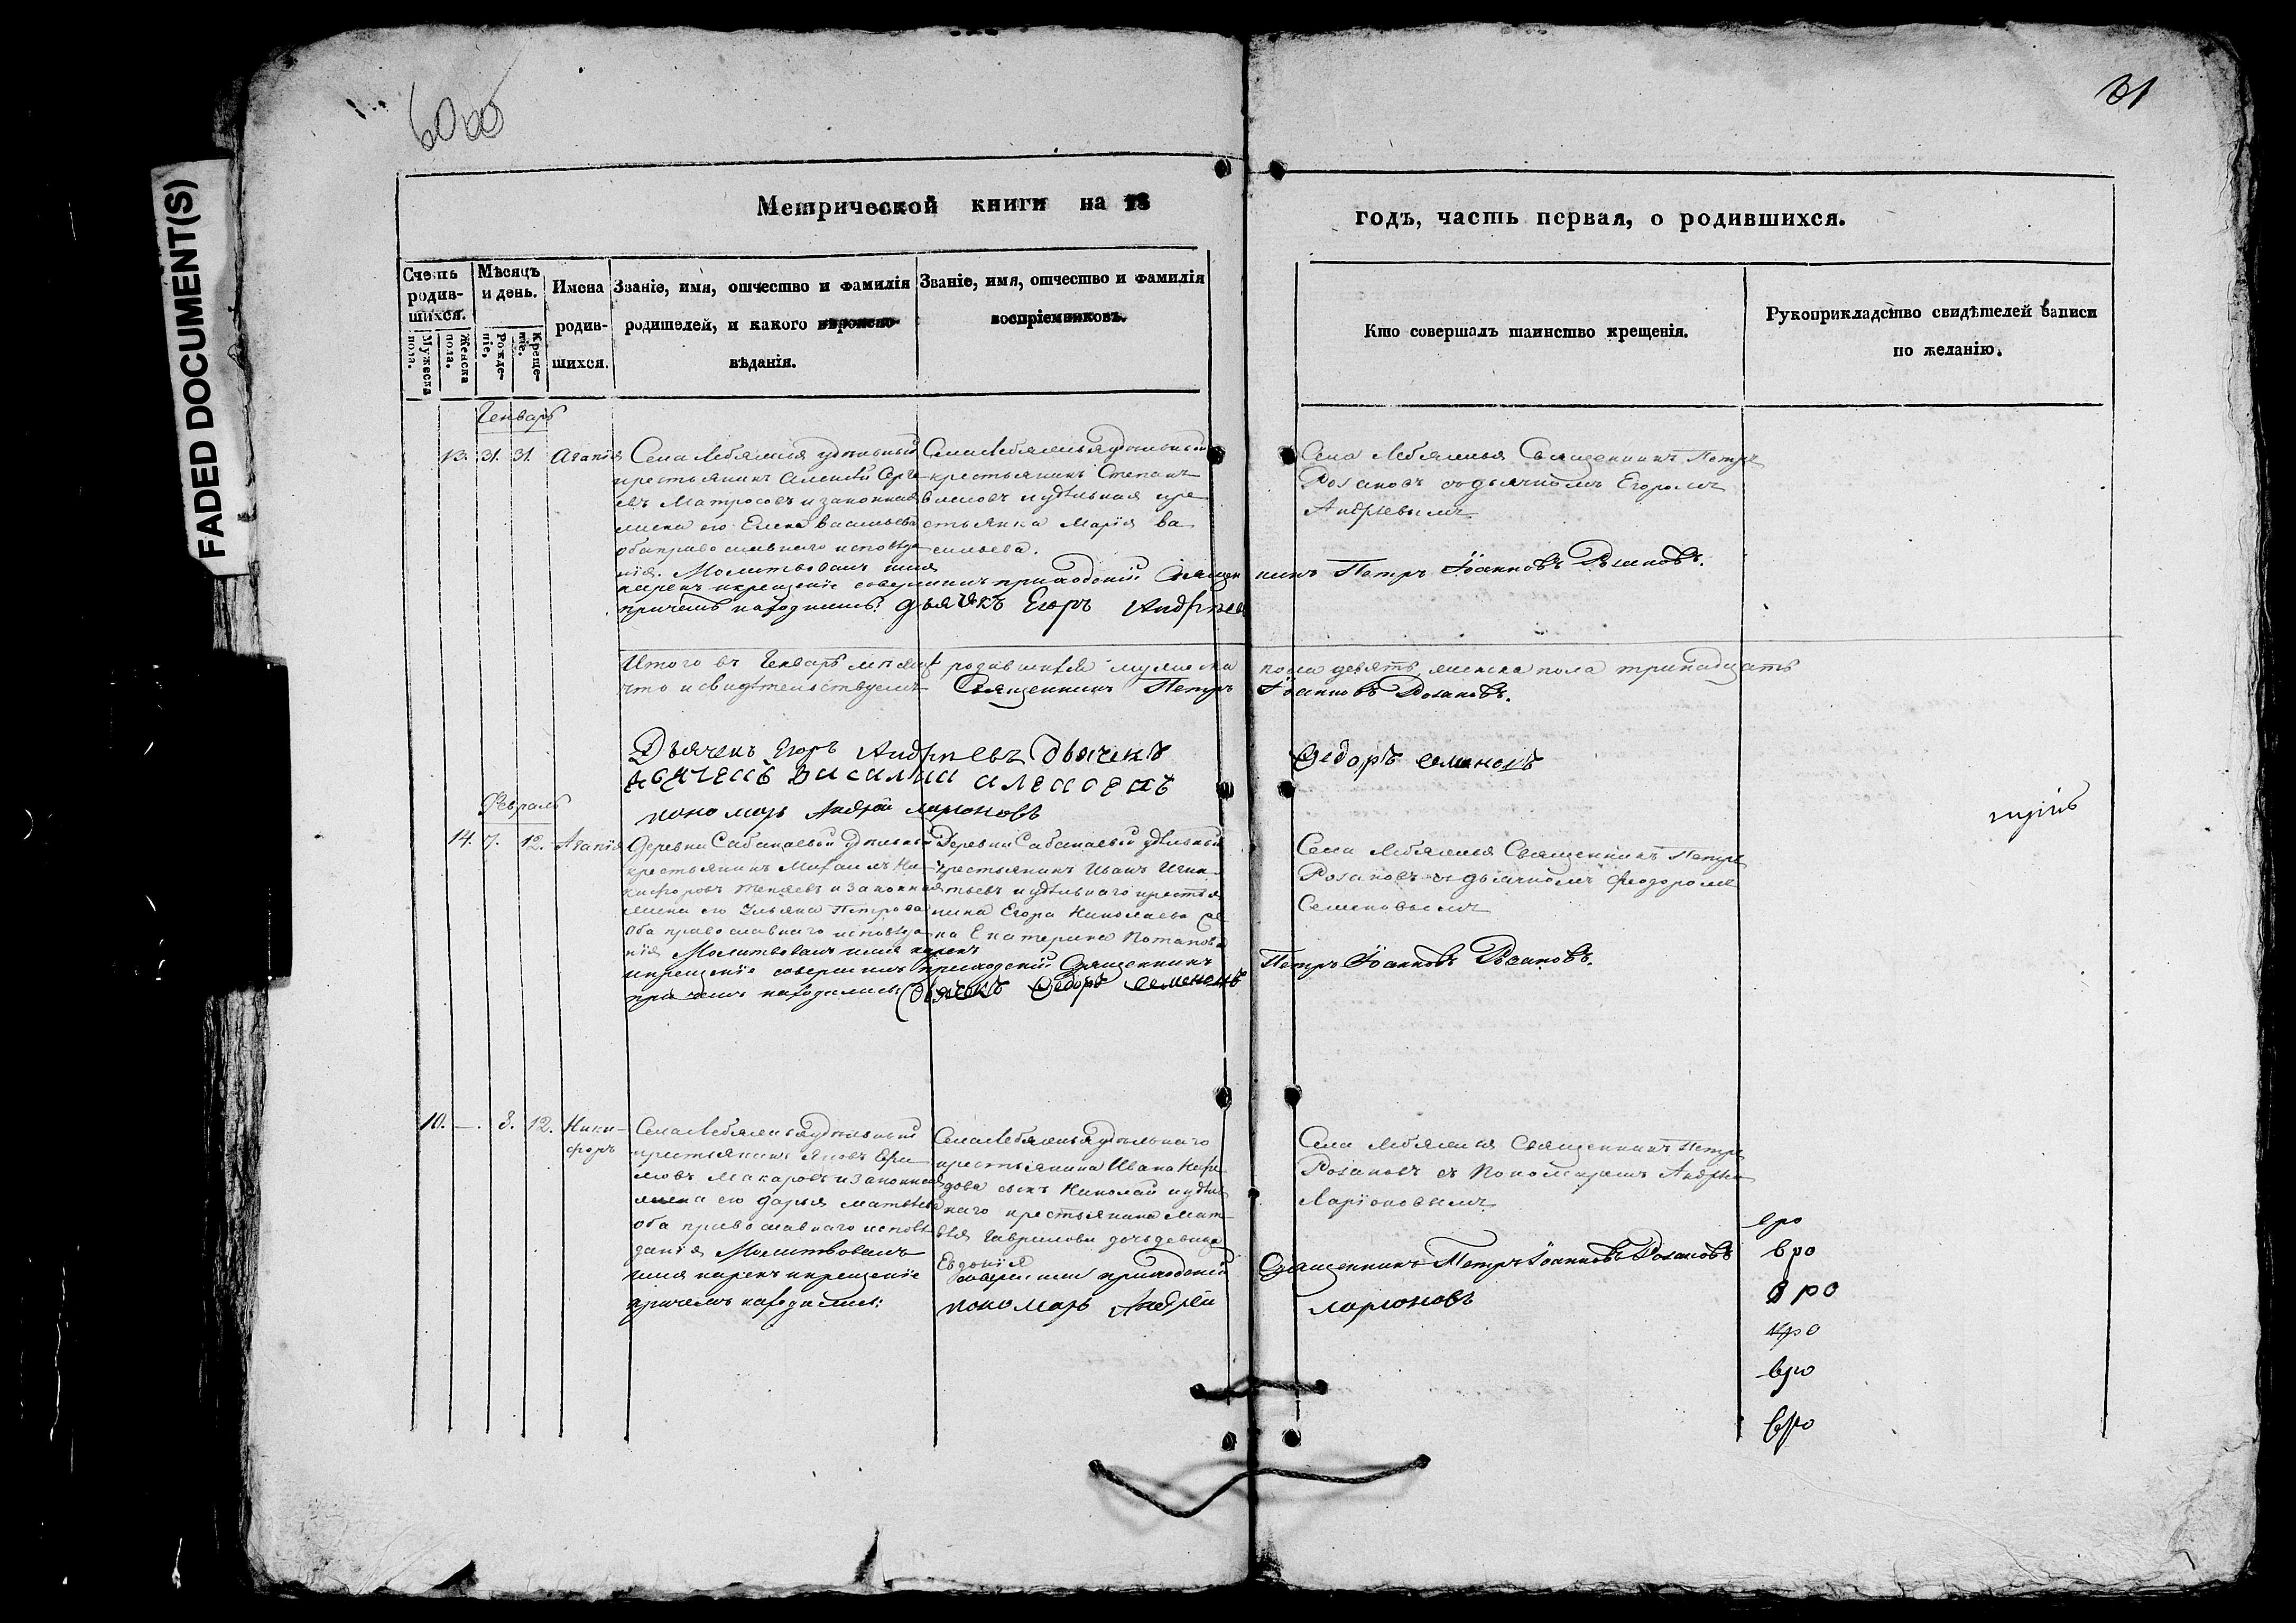 FADED DOCUMENT(S)
31
Метрической книги на 18
годъ, часть первая, о родившихся.
Счетъ родив-шихся.
Мужеска пола.
Женска пола.
Мѣсяцъ и день.
Рожде-ніе,
Креще-ніе.
Имена родив-шихся.
Званіе, имя, отчество и фамилія
родителей, и какого вѣроиспо-
вѣданія.
Званіе, имя, отчество и фамилія
воспріемниковъ.
Кто совершалъ таинство крещенія.
Рукоприкладство свидѣтелей записи
по желанію.
Генварь
13. 31. 31. Агапія
Села Лебяжья удѣльный
крестьянинъ Алексѣй Серге
евъ Матросовъ и законная
жена его Елена Васильева
оба православнаго исповѣда
нія. Молитвовалъ имя
нарекъ и крещеніе совершилъ приходскій Священ
никъ Петръ Іоанновъ Розановъ.
причемъ находились: дьячекъ Егоръ Андреев
Села Лебяжья удѣльный
крестьянинъ Степанъ
и удѣльная кре
стьянка Марія Ва
сильева.
Села Лебяжья Священникъ Петръ
Розановъ съ дьячкомъ Егоромъ
Андреевымъ
Итого въ Генварѣ мѣсяцѣ родившихся мужеска
пола девять, женска пола тринадцать
что и свидѣтельствуемъ Священникъ Петръ
Іоанновъ Розановъ.
Дьячекъ Егоръ Андреевъ дьячекъ
Федоръ Семеновъ
дьячекъ Василий Алексеевъ
пономарь Андрей Ларионовъ
Февраль
14. 7. 12. Агапія
Деревни Сабакаевой удѣльный
крестьянинъ Михаилъ Ни
кифоровъ и законная
жена его Ульяна Петрова
оба православнаго исповѣда
нія Молитвовалъ имя нарекъ
и крещеніе совершилъ приходскій Священникъ
Петръ Іоанновъ Розановъ.
при чемъ находились: дьячекъ Федоръ Семеновъ
Деревни Сабакаевой удѣльный
крестьянинъ Иванъ Игна
тьевъ и удѣльнаго крестья
нина Егора Николаева же
на Екатерина Потапова
Села Лебяжья Священникъ Петръ
Розановъ съ дьячкомъ Феодоромъ
Семеновымъ
10. —. 8. 12. Ники-
форъ
Села Лебяжья удѣльный
крестьянинъ Яковъ Ефи
мовъ Макаровъ и законная
жена его Дарья Матвѣева
оба православнаго исповѣ
данія Молитвовалъ
имя нарекъ и крещеніе
совершилъ приходскій
Священникъ Петръ Іоанновъ Розановъ
причемъ находились:
пономарь Андрей
Ларионовъ
Села Лебяжья удѣльнаго
крестьянина Ивана
сынъ Николай и удѣль
наго крестьянина Мат
вѣя Гаврилова дочь девица
Евдокія
Села Лебяжья Священникъ Петръ
Розановъ съ Пономаремъ Андреемъ
Ларіоновымъ